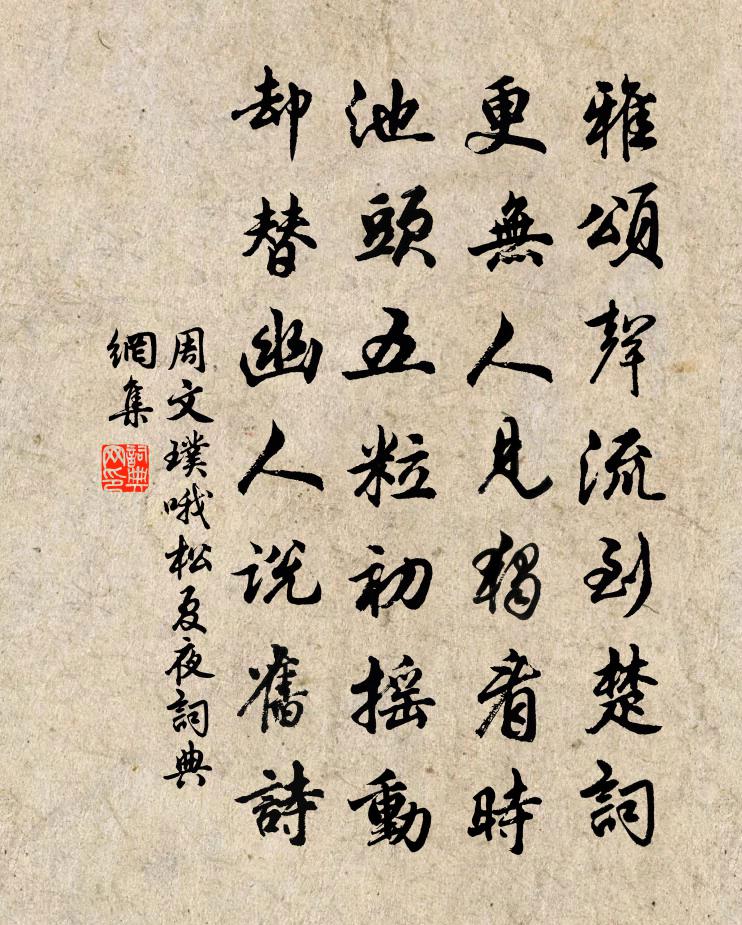 雅頌聲流到楚詞
更無人見獨看時
池頭五粒初摇動
却替幽人説舊詩
周文璞哦松夏夜詞典
網集
詞典
网印